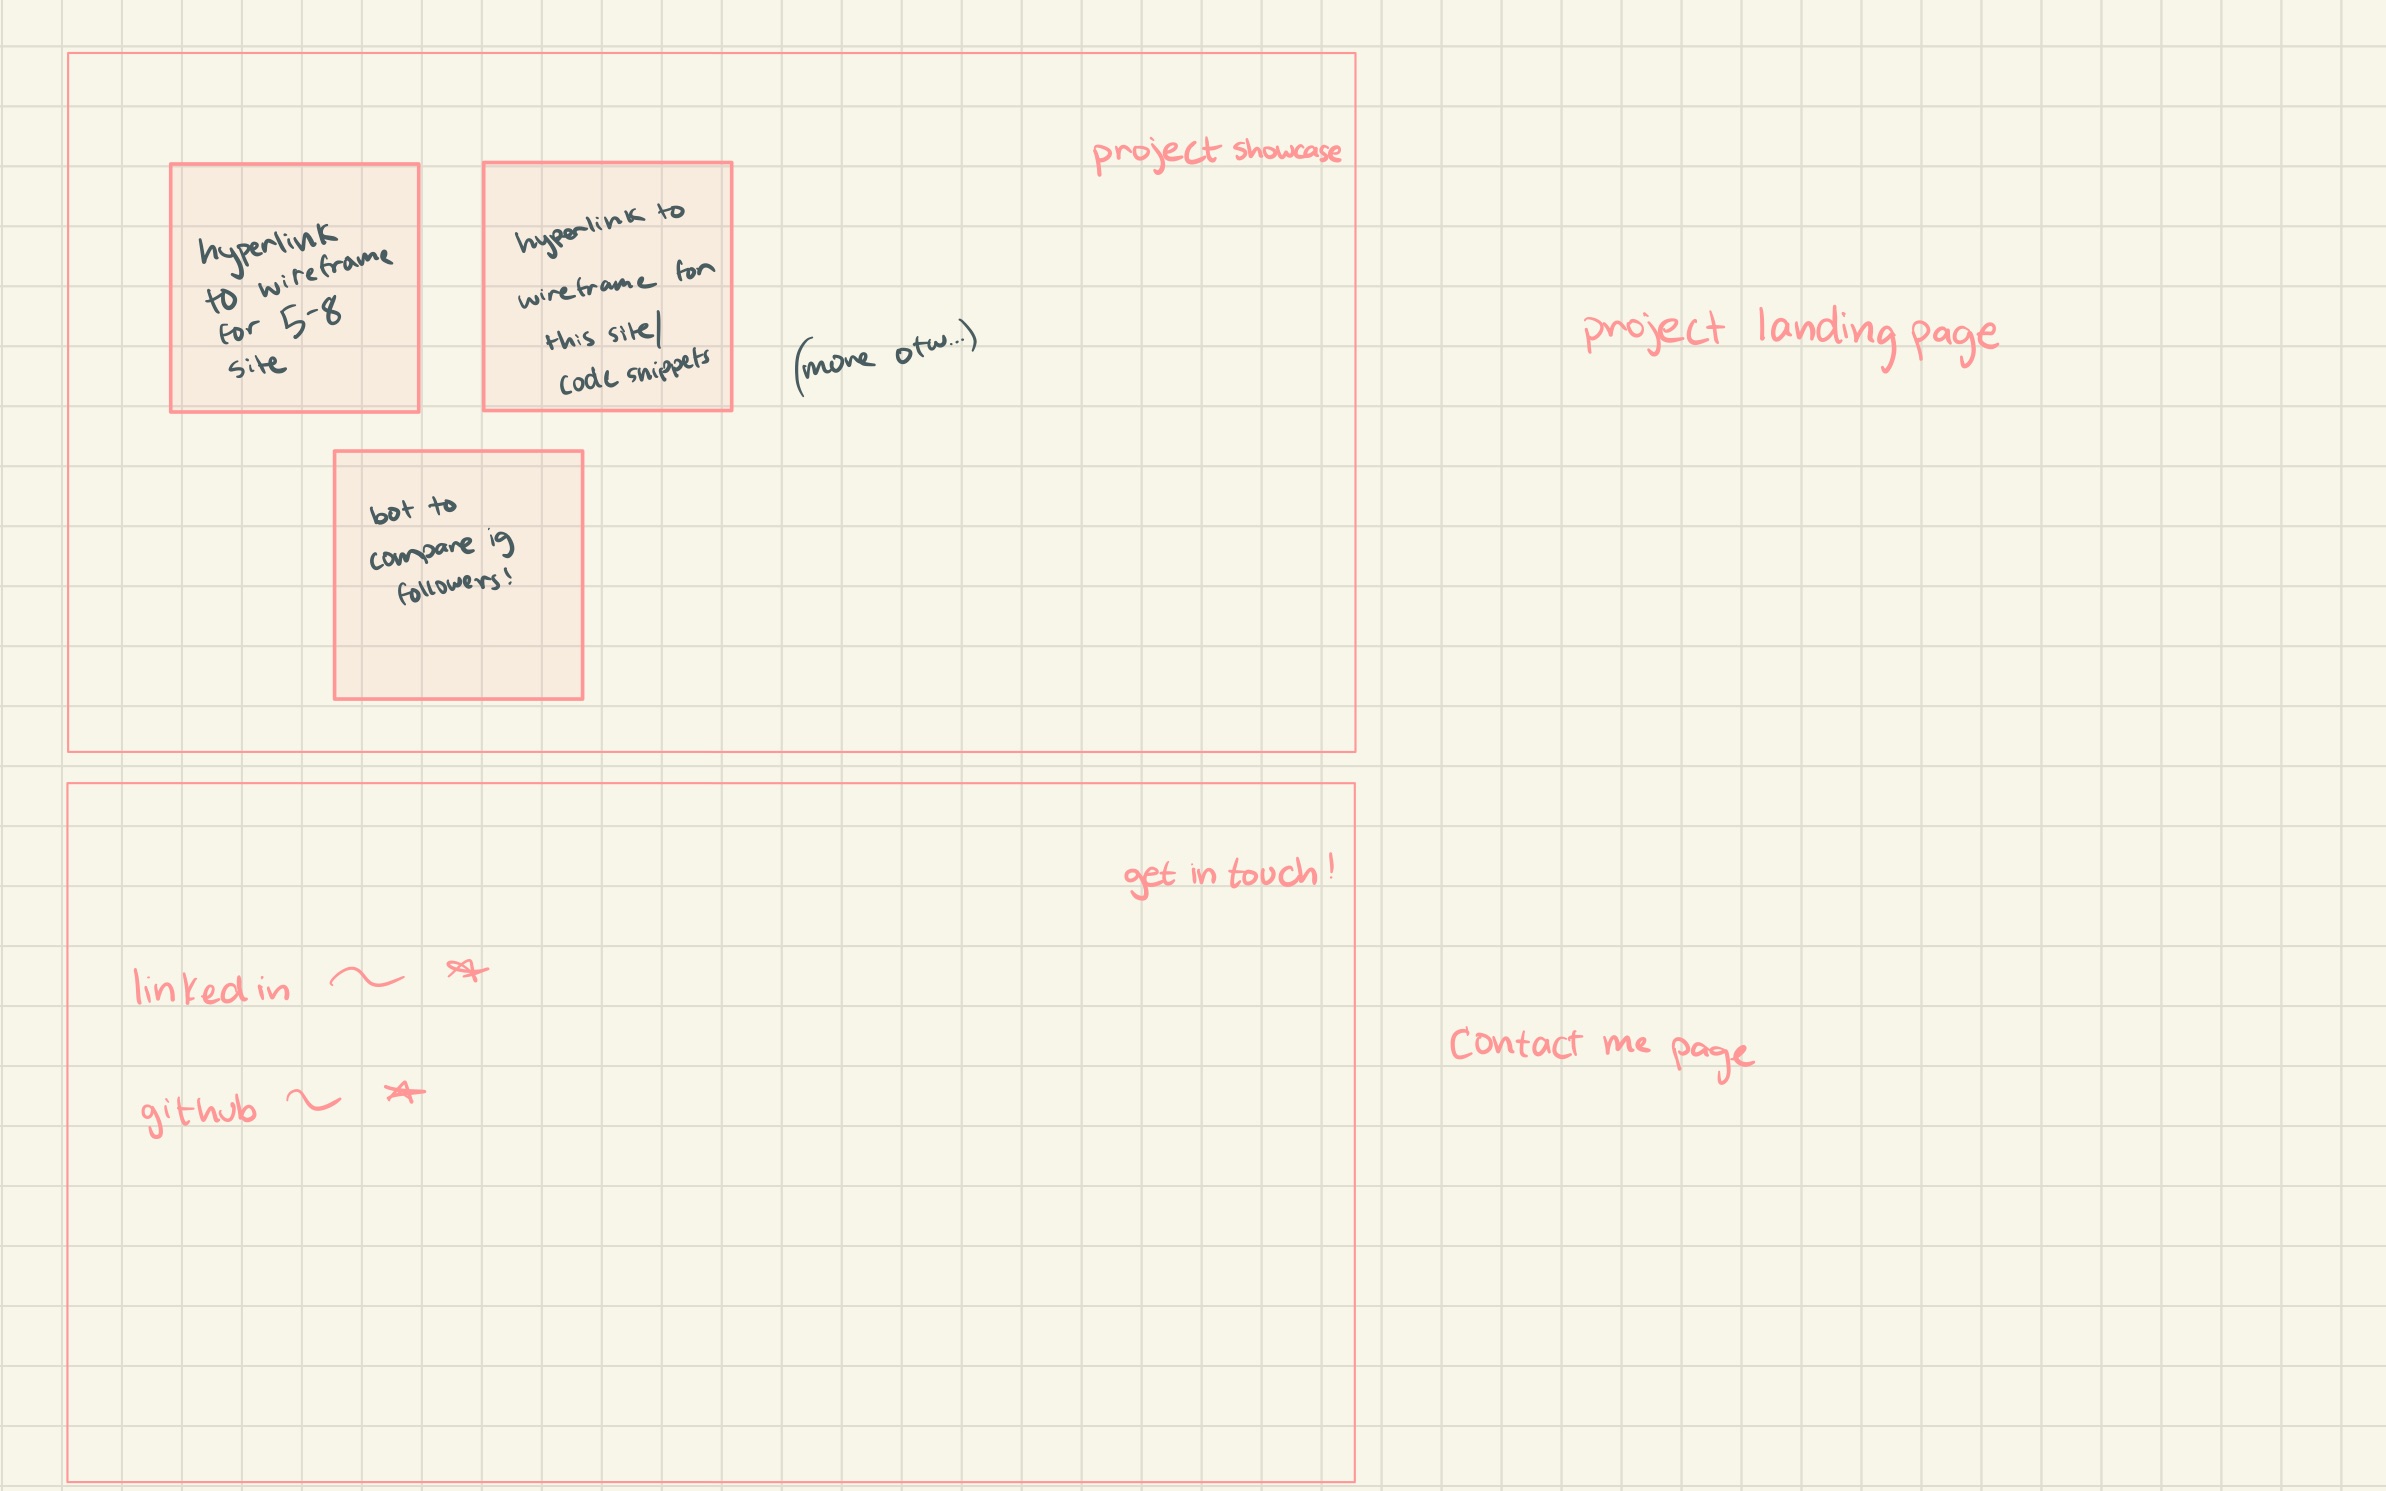 project showcase
hyperlink
to wireframe
for 5-8
site
hyperlink to
wireframe for
this site/
code snippets
(more otw...)
bot to
compare ig
followers!
project landing page
get in touch!
linkedin ~
github ~
Contact me page